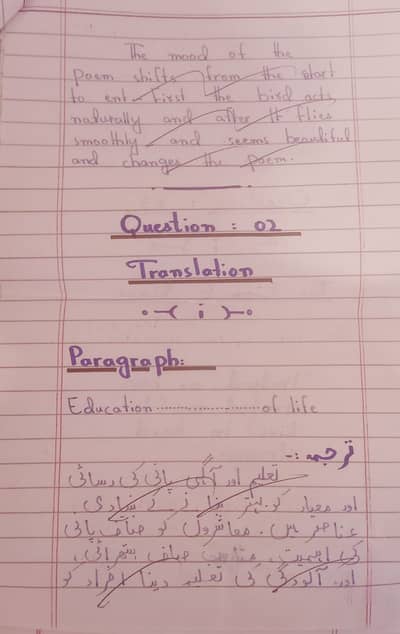 The mood of the
poem shifts from the start
to ent first the bird acts,
naturally and after it flies
smoothly and seems beautiful
and changes the poem.
Question : 02
Translation
i
Paragraph:
Education..........................of life
ترجمہ :-
تعلیم اور آگہی پانی کی رسائی
اور معیار کو بہتر بنانے کے بنیادی
عناصر ہیں. معاشروں کو صاف پانی
کی اہمیت، مناسب صاف ستھرائی،
اور آلودگی کی تعلیم دینا افراد کو